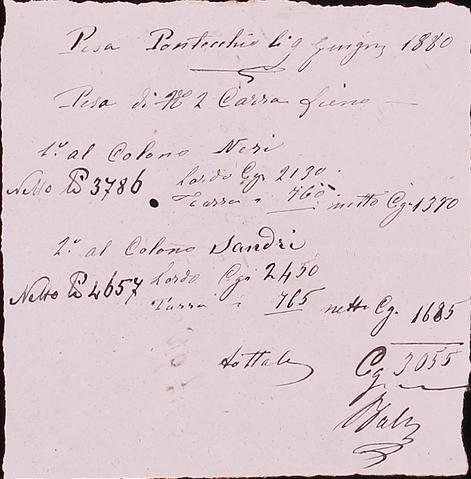 Pesa Pontecchio li 9 Giugno 1880
Pesa di No 2 Carra fieno
1º al Colono Neri
Lordo Cgi 2130
Netto 3786
Tarra " 760 netto Cgi 1370
2º al Colono Sandri
Lordo Cgi 2450
Netto 4657
Tarra " 765 netto Cg. 1685
tottale Cg 3055